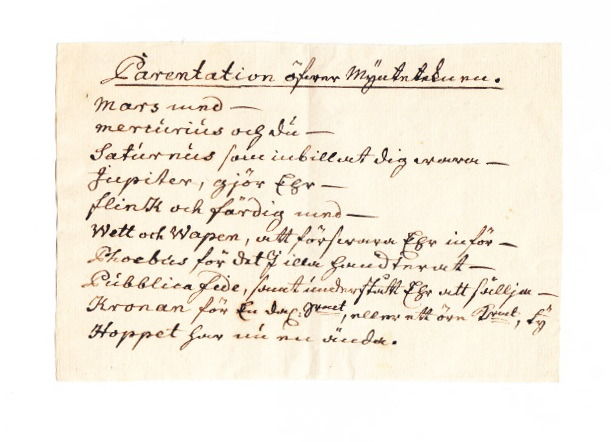 Parentation öfwer Mynteteknen.
Mars med —
mercurius och du —
Saturnus som inbillat dig wara —
Jupiter, gjör Ehr —
flink och färdig med —
Wett och Wapen, att förswara Ehr inför —
Phoebus för det I illa handterat —
Pubblica Fide, samt understått Ehr att sällja —
Kronan för En dal: Srmt, eller ett öre Krmt, ty
Hoppet har nu en ända.